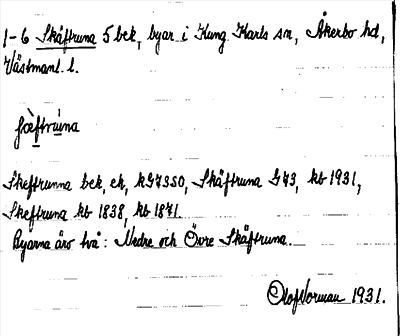 1-6 Skäftruna 5 bek, byar i Kung Karls sn, Åkerbo hd,
Västmanl. l.
Skeftrunna bek, ek, kG73SO, Skäftruna G73, kb 1931,
Skeftruna kb 1838, kb 1871.
Byarna äro två: Nedre och Övre Skäftruna.
Olof Norman 1931.